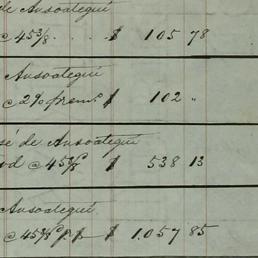 de Ansoategui
@ 45 3/8 . . . . $ 105 78
Ansoategui
@ 2% prem. $ 102 "
sé de Ansoategui
od @ 45 3/8 $ 538 13
Ansoategui
@ 45 3/8 $ 1.057 85